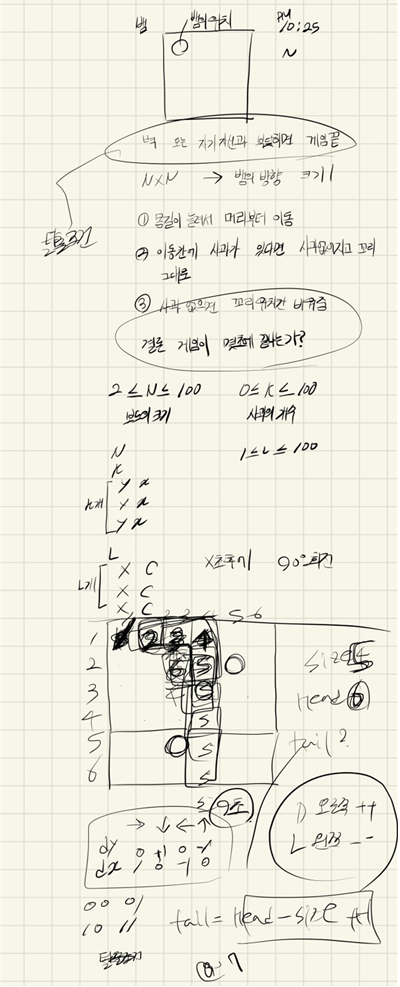 뱀 뱀의위치 PM 10:25
N
벽 또는 자기자신과 부딪히면 게임끝
NXN → 뱀의 방향 크기 1
탈출조건
① 몸길이 늘려서 머리부터 이동
② 이동칸에 사과가 있다면 사과없어지고 꼬리
그대로
③ 사과 없으면 꼬리위치칸 비워줌
결론 게임이 몇초에 끝나는가?
2 ≤ N ≤ 100 0 ≤ K ≤ 100
보드의 크기 사과의 개수
N 1 ≤ L ≤ 100
K
K개 Y x
Y x
Y x
L
X초후에 90° 회전
L개 X C
X C
X C
5 6
1 2 3 4
2 6 5
3
4 5
5 5
6 5
size 5
Head 6
tail ?
9초
→ ↓ ← ↑
dy 0 +1 0 -1
dx 1 0 -1 0
D 오른쪽 ++
L 왼쪽 --
00 01
10 11
tail = Head - size +1
7